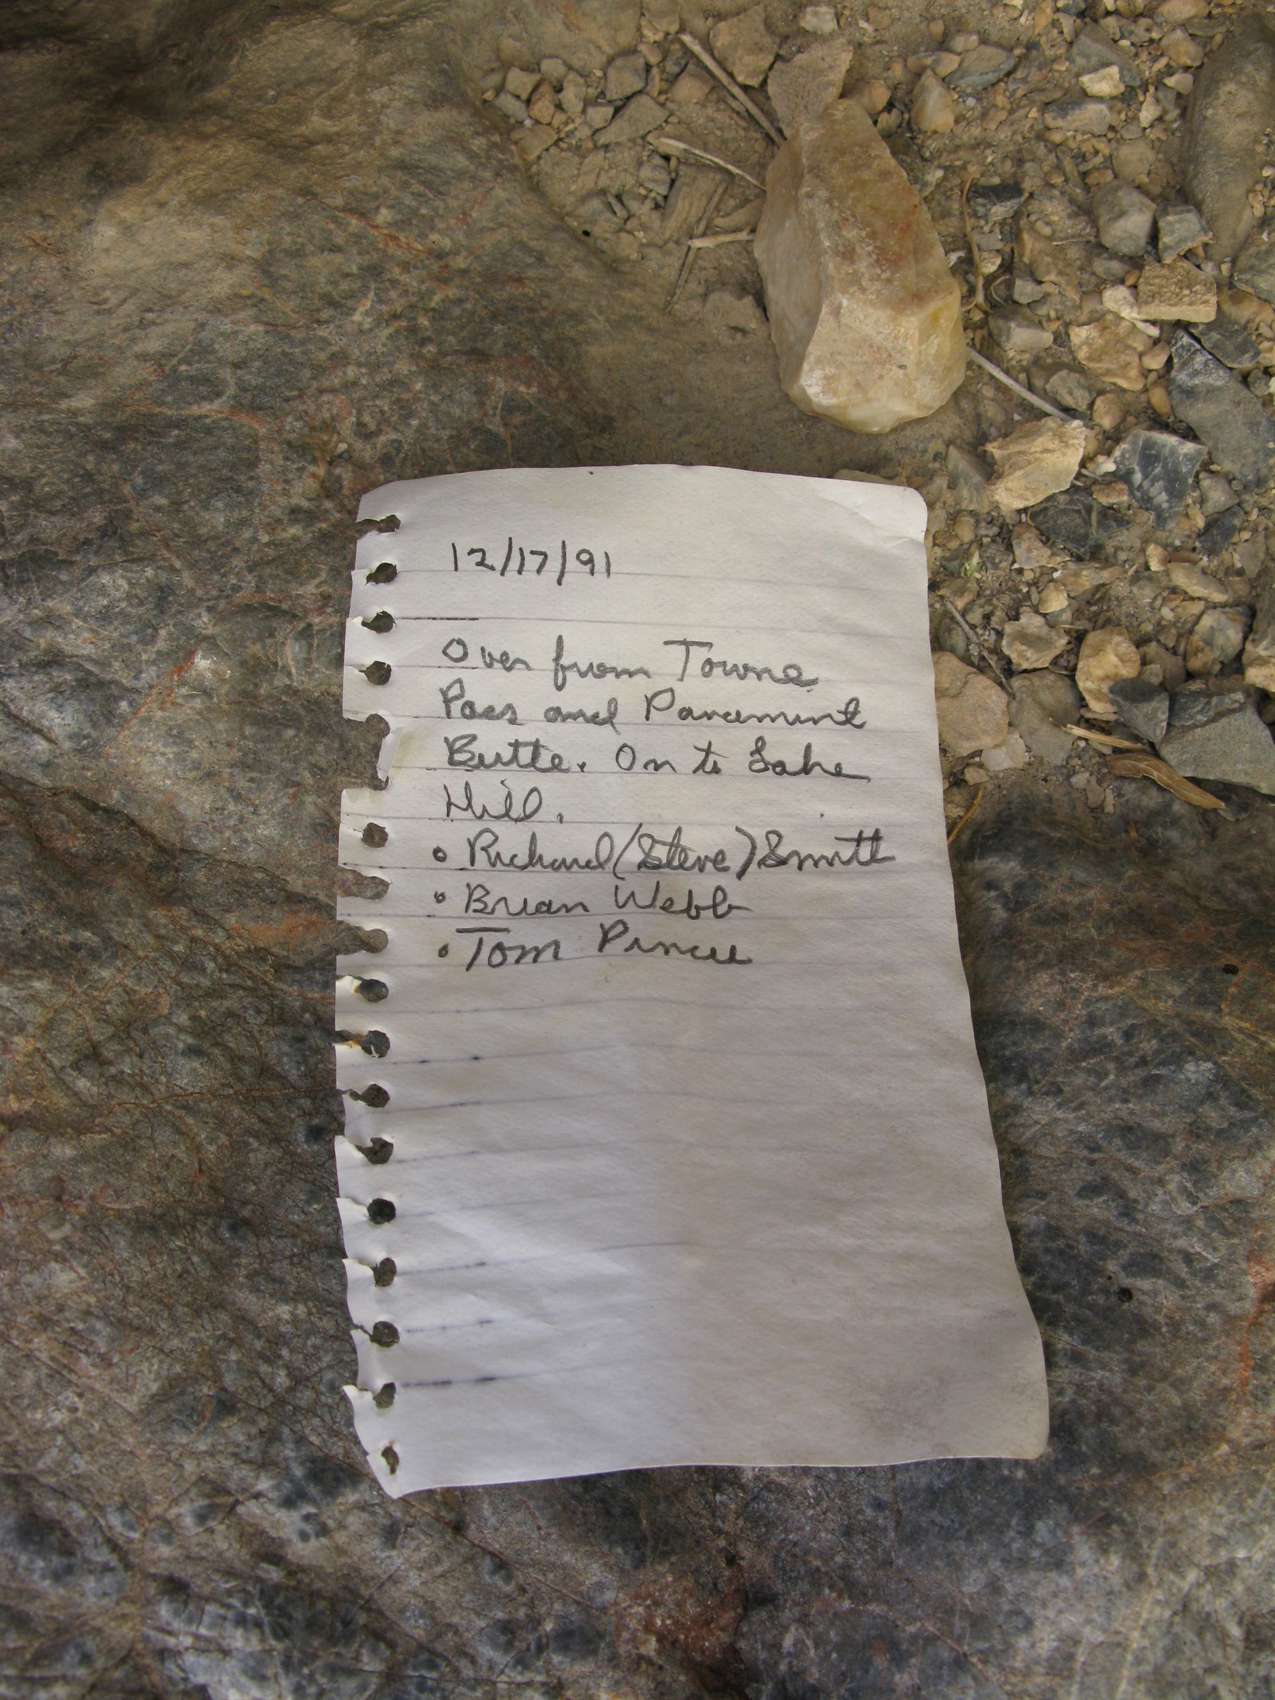 12/17/91
Over from Towne
Pass and Panamint
Butte. On to Lake
Hill.
• Richard (Steve) Smith
• Brian Webb
• Tom